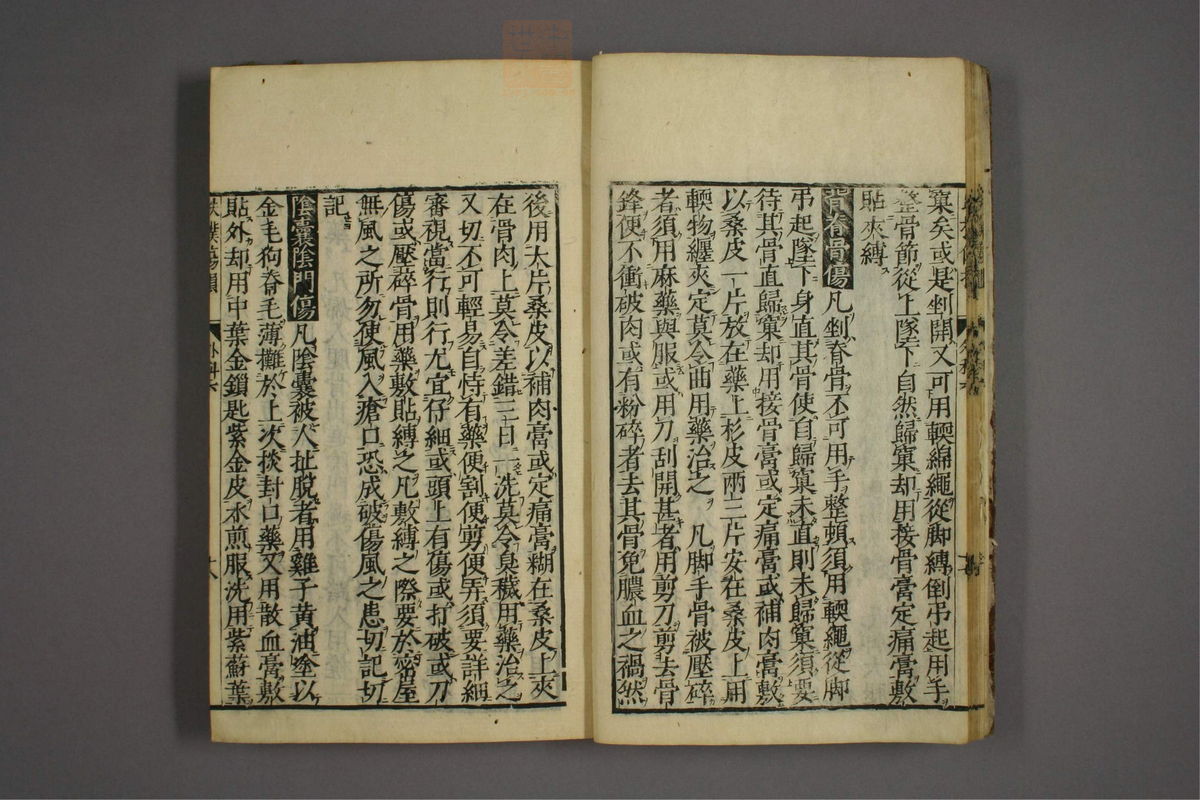 窠矣或是剉開又可用輭綿繩從脚縛倒吊起用手
整骨節從上墜下自然歸窠却用接骨膏定痛膏敷
貼夾縛
背脊骨傷凡剉脊骨不可用手整頓須用輭繩從脚
吊起墜下身直其骨使自歸窠未直則未歸窠須要
待其骨直歸窠却用接骨膏或定痛膏或補肉膏敷
以桑皮一片放在藥上杉皮兩三片安在桑皮上用
輭物纏夾定莫令曲用藥治之 凡脚手骨被壓碎
者須用麻藥與服或用刀刮開甚者用剪刀剪去骨
鋒便不衝破肉或有粉碎者去其骨免膿血之禍然
後用大片桑皮以補肉膏或定痛膏糊在桑皮上夾
在骨肉上莫令差錯三日一洗莫令臭穢用藥治之
又切不可輕易自恃有藥便割便剪便弄須要詳細
審視當行則行尤宜仔細或頭上有傷或打破或刀
傷或壓碎骨用藥敷貼縛之凡敷縛之際要於密屋
無風之所勿使風入瘡口恐成破傷風之患切記切
記
陰囊陰門傷凡陰囊被人扯脫者用雞子黄油塗以
金毛狗脊毛薄攤於上次掞封口藥又用散血膏敷
貼外却用中葉金鎖匙紫金皮水煎服洗用紫蘇葉